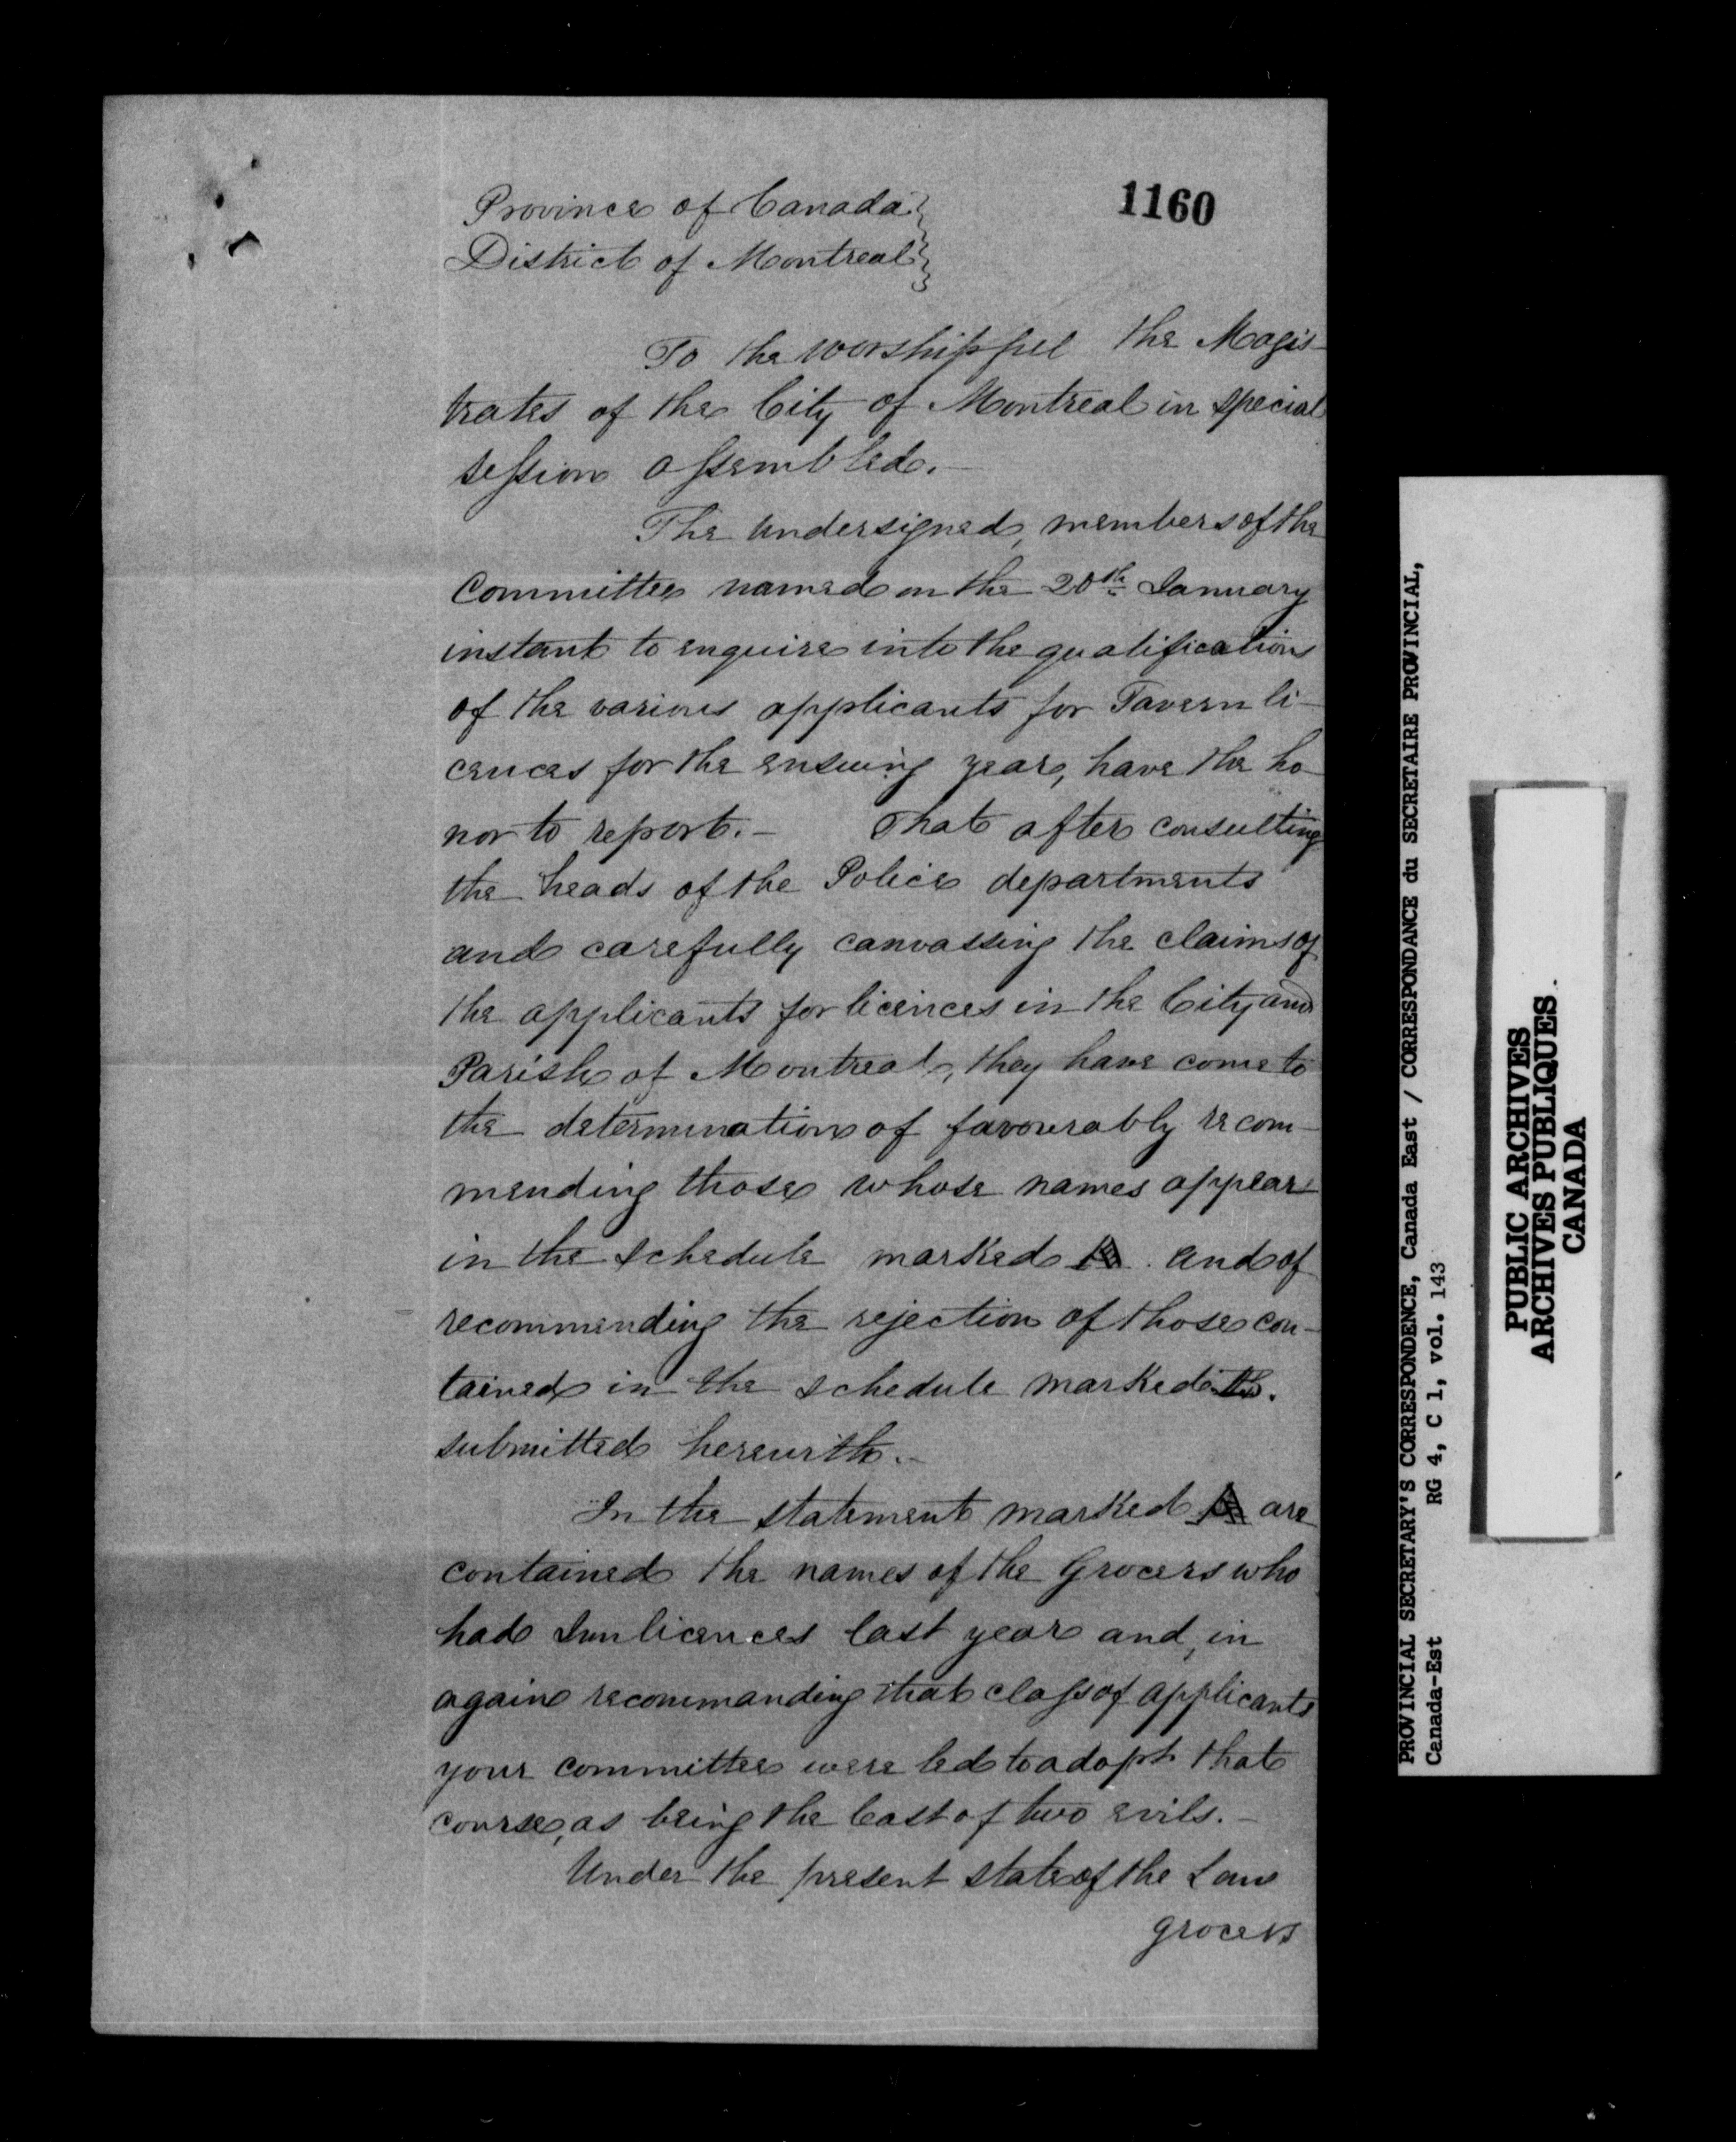 1160
Province of Canada
District of Montreal
To the worshipful the Magis-
trates of the City of Montreal in special
session assembled.-
The Undersigned, members of the
Committee named on the 20th January
instant to enquire into the qualifications
of the various applicants for Tavern li-
cences for the ensuing year, have the ho-
nor to report.- That after consulting
the heads of the Police departments
and carefully canvassing the claims of
the applicants for licences in the City and
Parish of Montreal, they have come to
the determination of favourably recom-
mending those whose names appear
in the schedule marked and of
recommending the rejection of those con-
tained in the schedule marked
submitted herewith.-
In the statement marked are
contained the names of the Grocers who
had Inn licences last year and, in
again recommanding that class of applicants
your committee were led to adopt that
course, as being the least of two evils.-
Under the present state of the Law
grocers
PROVINCIAL SECRETARY'S CORRESPONDENCE, Canada East / CORRESPONDANCE du SECRETAIRE PROVINCIAL,
Canada-Est RG 4, C 1, vol. 143
PUBLIC ARCHIVES
ARCHIVES PUBLIQUES
CANADA